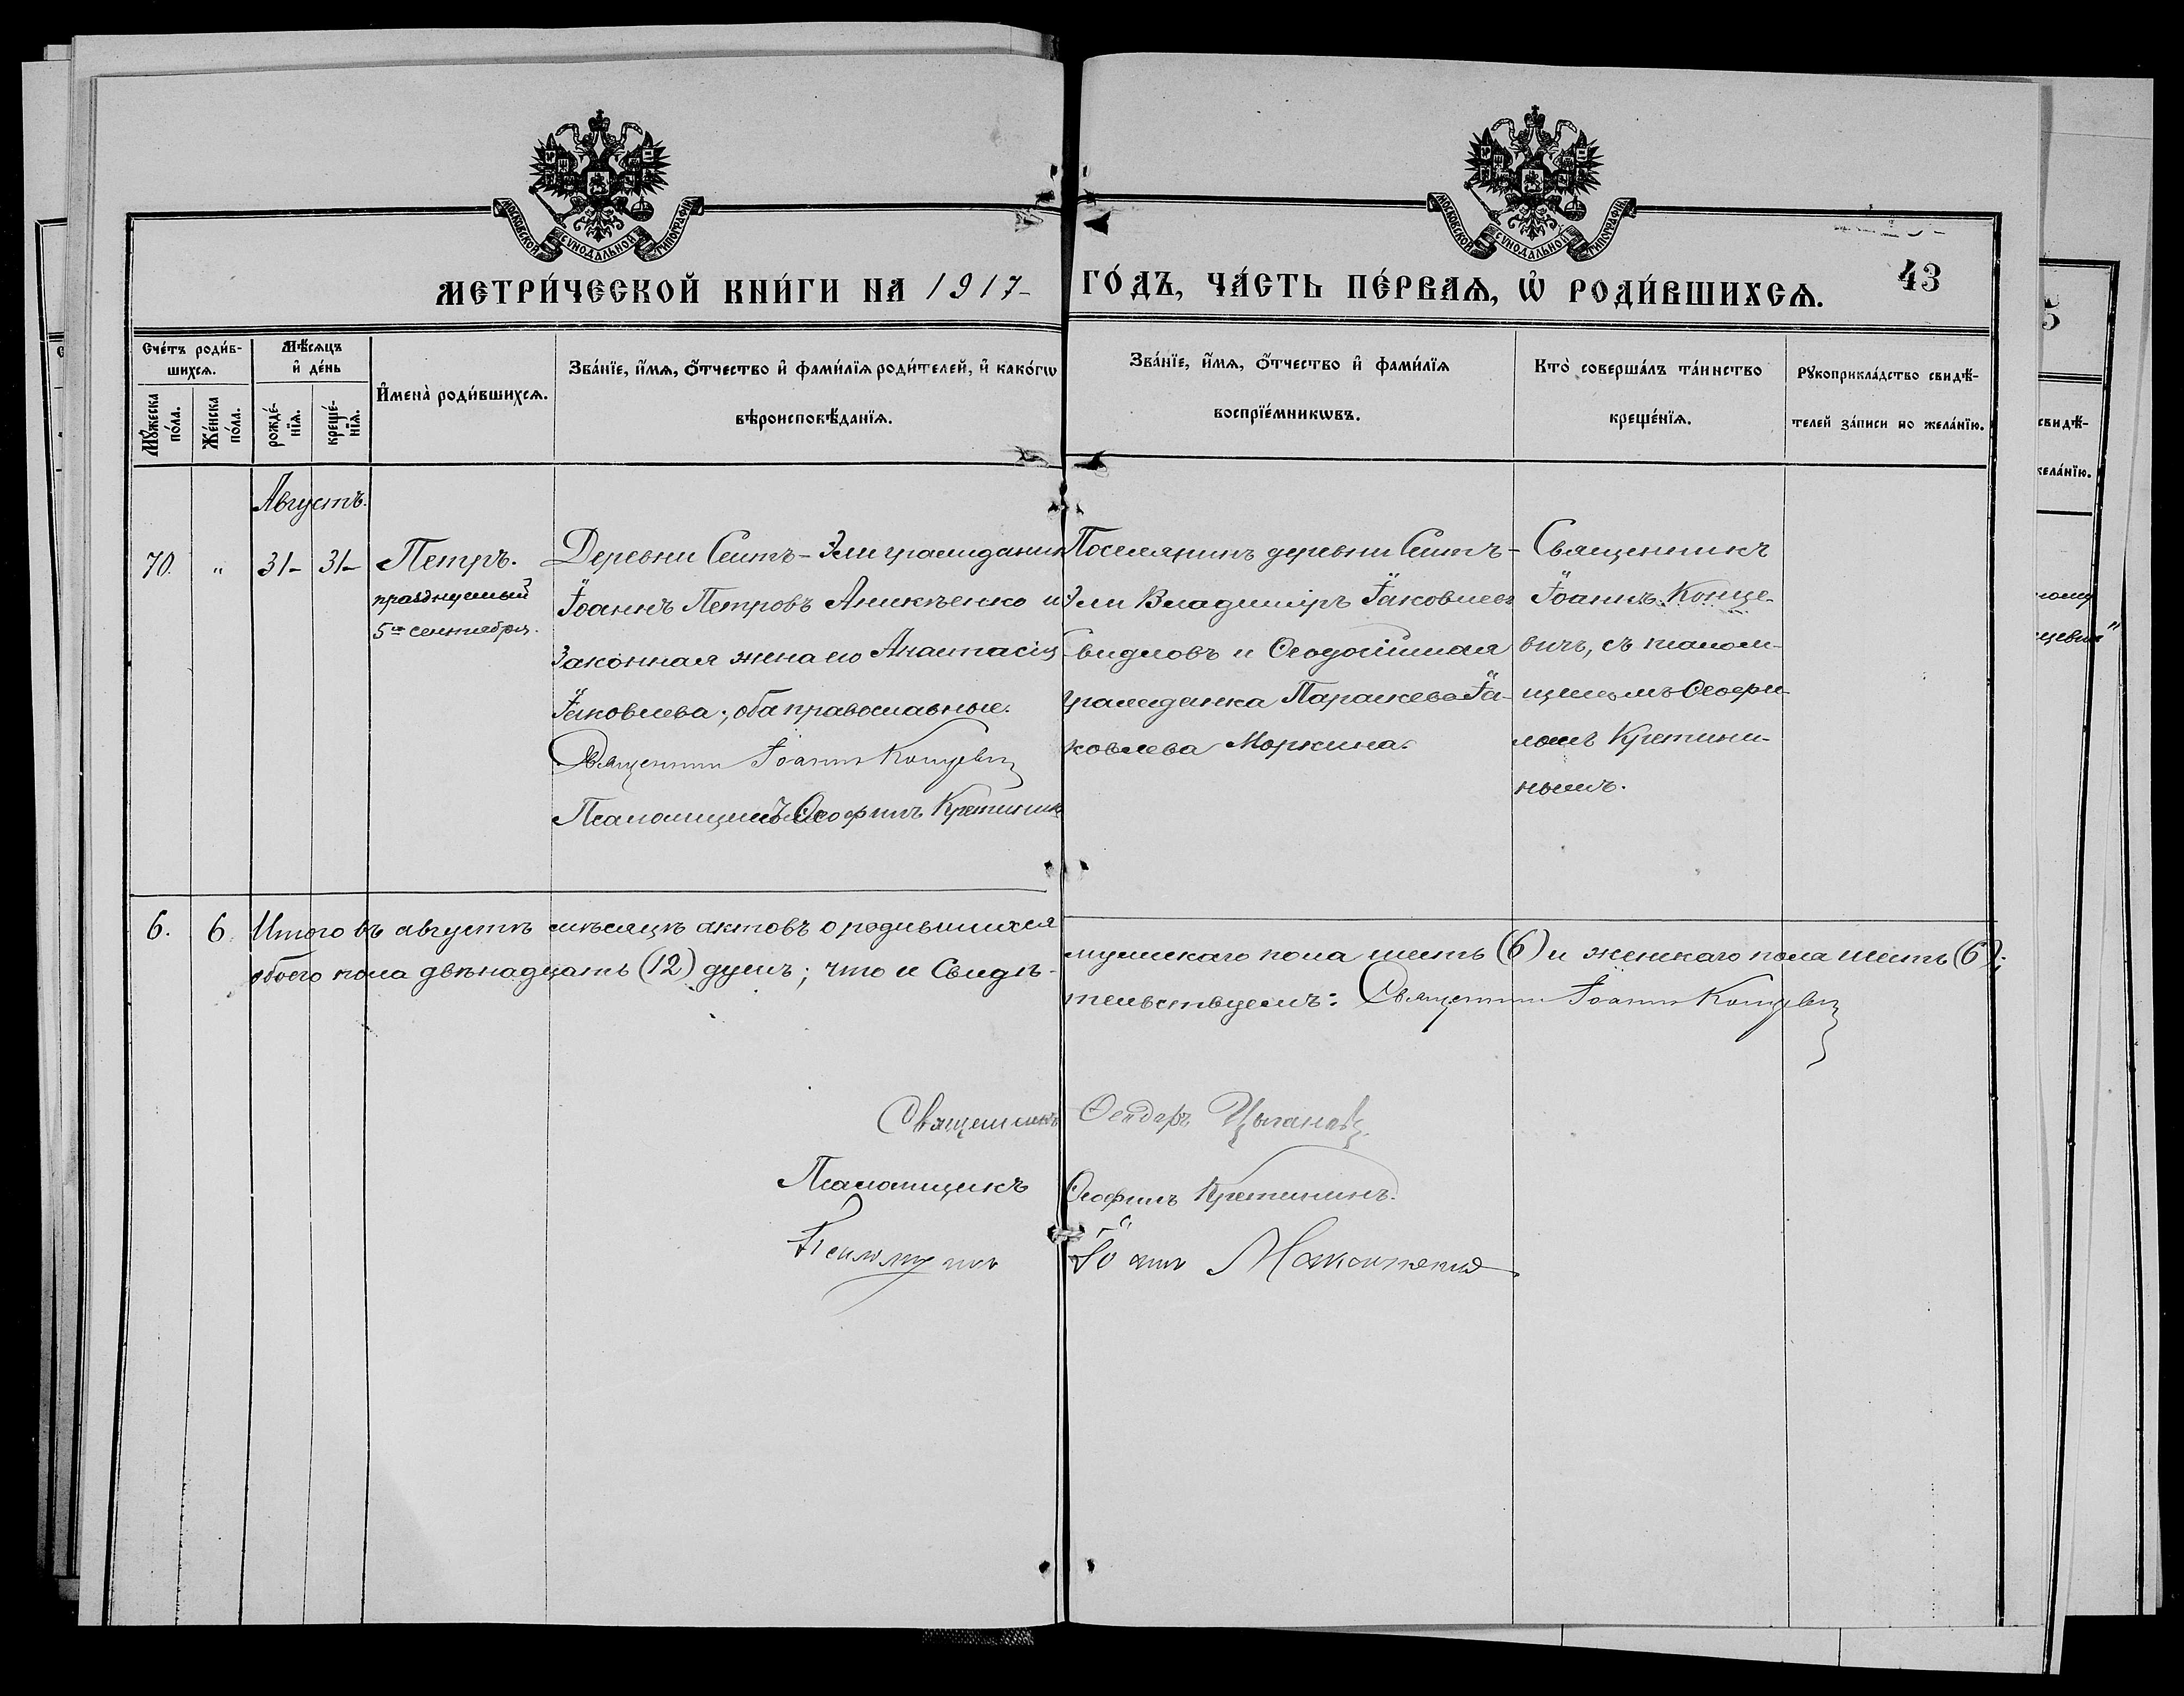 МОСКОВСКОЙ СУНОДАЛЬНОЙ ТИПОГРАФІИ
МОСКОВСКОЙ СУНОДАЛЬНОЙ ТИПОГРАФІИ
МЕТРИ́ЧЕСКОЙ КНИ́ГИ НА 1917-
ГО́ДЪ, ЧА́СТЬ ПЕ́РВАѦ, Ѽ РОДИ́ВШИХСѦ.
43
Сче́тъ роди́в-
шихсѧ.
Мѣ́сѧцъ
и҆ де́нь
И҆мена̀ роди́вшихсѧ.
Зва́нїе, и҆́мѧ, ѻ҆́тчество и҆ фами́лїѧ роди́телей, и҆ како́гѡ
вѣроисповѣ́данїѧ.
Мꙋ́жеска
по́ла.
Же́нска
по́ла.
рожде́-
нїѧ.
креще́-
нїѧ.
Зва́нїе, и҆́мѧ, ѻ҆́тчество и҆ фами́лїѧ
воспрїе́мникѡвъ.
Кто̀ соверша́лъ та́инство
креще́нїѧ.
Рꙋкоприкла́дство свидѣ́-
телей за́писи по жела́нїю.
Августъ.
70. " 31- 31- Петръ.
празднуемый
5го сентября.
Деревни Сеитъ-Эли гражданинъ
Іоаннъ Петровъ Аникѣенко и
законная жена его Анастасія
Іаковлева; оба православные.
Священникъ Іоаннъ Концевичъ
Псаломщикъ Ѳеофилъ Кретининъ
Поселянинъ деревни Сеитъ-
Эли Владиміръ Іаковлевъ
Свидловъ и Ѳеодосійская
гражданка Параскева Іа-
ковлева Моркина.
Священникъ
Іоаннъ Конце-
вичъ, съ псалом-
щикомъ Ѳеофи-
ломъ Кретини-
нымъ.
6. 6. Итого въ августѣ мѣсяцѣ актовъ о родившихся
обоего пола двѣнадцать (12) душъ; что и свидѣ-
мужскаго пола шесть (6) и женскаго пола шесть (6);
тельствуемъ: Священникъ Іоаннъ Концевичъ
Священникъ Ѳеодоръ
Псаломщикъ Ѳеофилъ Кретининъ.
Іоаннъ
свидѣ́-
жела́нїю.